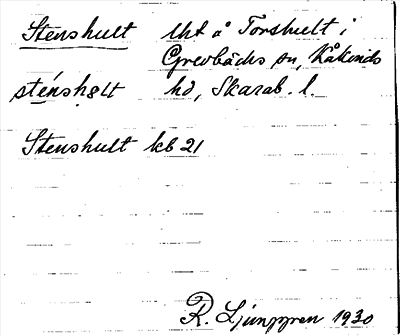 Stenshult lht å Torshult i
Grevbäcks sn, Kåkinds
sténshalt hd, Skarab. l.
Stenshult kb 21
R. Ljunggren 1930